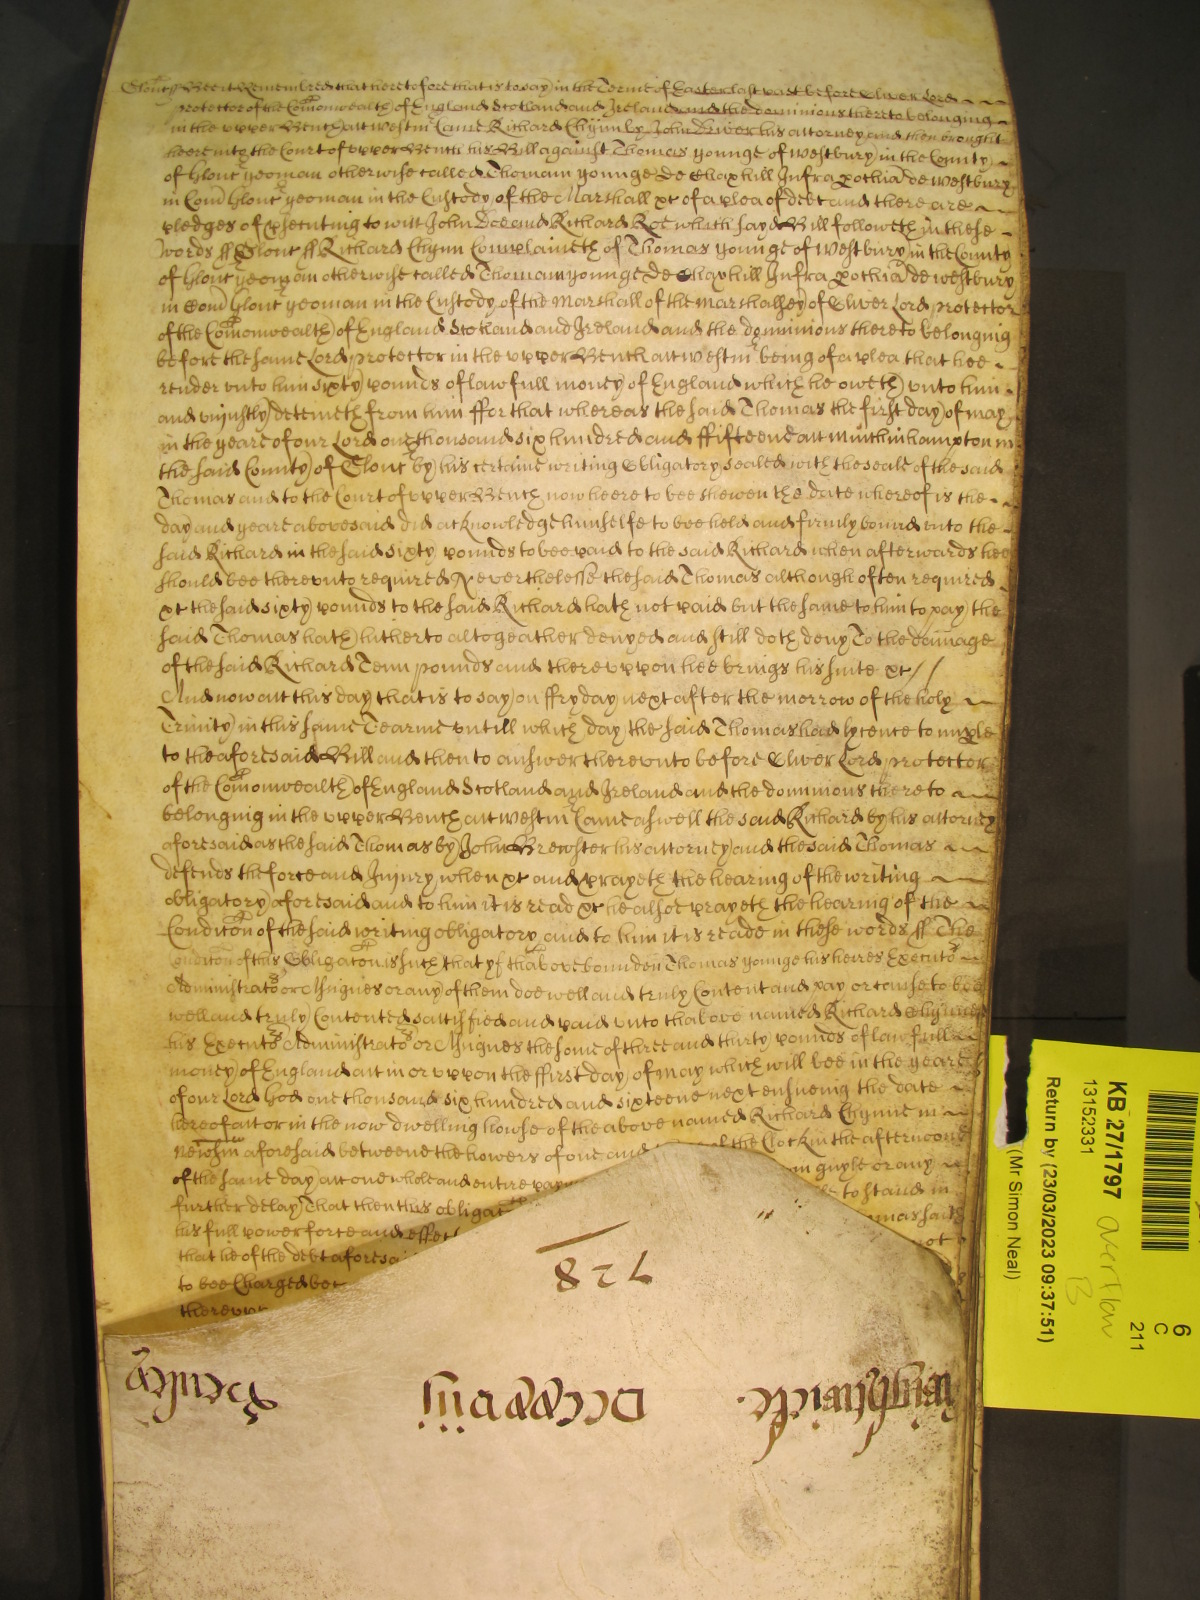 Glouc ff Bee it Remembred that heretofore that is to say in the Terme of Easter last past before Oliver Lord
protector of the Comonwealth of England Scotland and Ireland and the dominions thereto belonging
in the upper Bench att westm Came Richard Chynn by John Driver his attorney and then brought
heere into the Court of upper Bench his Bill against Thomas younge of westbury in the County
of Glouc yeoman otherwise called Thomam younge de Chaxhill Infra pochia de westbury
in Com Glouc yeoman in the Custody of the Marshall &c of a plea of debt and there are
pledges of psecuting to witt John Doe and Richard Roe which said Bill followeth in these
words ff Glouc ff Richard Chynn Complaineth of Thomas younge of Westbury in the County
of Glouc yeoman otherwise called Thomam younge de Chaxhill Infra pochia de westbury
in Com Glouc yeoman in the Custody of the Marshall of the Marshalsey of Oliver Lord protector
of the Comonwealth of England Scotland and Ireland and the dominions thereto belonging
before the same Lord protector in the upper Bench att westm being of a plea that hee
render unto him sixty pounds of lawfull money of England which he oweth unto him
and uniustly deteineth from him ffor that whereas the said Thomas the first day of may
in the yeare of our Lord one thousand six hundred and ffifteene att Minchinhampton in
the said County of Glouc by his certaine writing Obligatory sealed with the seale of the said
Thomas and to the Court of upper Bench now heere to bee shewen the date whereof is the
day and yeare abovesaid did acknowledge himselfe to bee held and firmly bound unto the
said Richard in the said sixty pounds to bee paid to the said Richard when afterwards hee
should bee thereunto required Neverthelesse the said Thomas although often required
&c the said sixty pounds to the said Richard hath not paid but the same to him to pay the
said Thomas hath hitherto altogeather denyed and still doth deny To the damage
of the said Richard Tenn pounds and thereuppon hee brings his suite &c //
And now att this day that is to say on ffryday next after the morrow of the holy
Trinity in this same Tearme untill which day the said Thomas had lycence to imple
to the aforesaid Bill and then to answer thereunto before Oliver Lord protector
of the Comonwealth of England Scotland and Ireland and the dominions thereto
belonging in the upper Bench att westm Came aswell the said Richard by his attorney
aforesaid as the said Thomas by John Brewster his attorney and the said Thomas
defends the force and Injury when &c and prayeth the hearing of the writing
obligatory aforesaid and to him it is read &c he alsoe prayeth the hearing of the
Condicon of the said writing obligatory and to him it is reade in these words ff The
Condicon of this Obligacon is such that yf thabovebounden Thomas younge his heires Executors
Administrators or Assignes or any of them doe well and truly Content and pay or cause to bee
well and truly Contented sattisfied and paid unto thabove named Richard Chynne
his Executors Administrators or Assignes the some of three and thirty pounds of lawfull
money of England att in or uppon the ffirst day of May which will bee in the yeare
of our Lord God one thousand six hundred and sixteene next ensueing the date
hereof att or in the now dwelling howse of the above named Richard Chynne in
aforesaid betweene the howers of one and of the Clock in the afternoone
of the same day att one whole and entire guyle or any
further delay That then this obligac to stand in
his full power force and effect mas saith
that he of the debt aforesaid not
to bee Charged bec
thereupp
728
Henley
Dccxxviij
KB 27/1797 overflow B
13152331
Return by (23/03/2023 09:37:51)
(Mr Simon Neal)
6
C
211